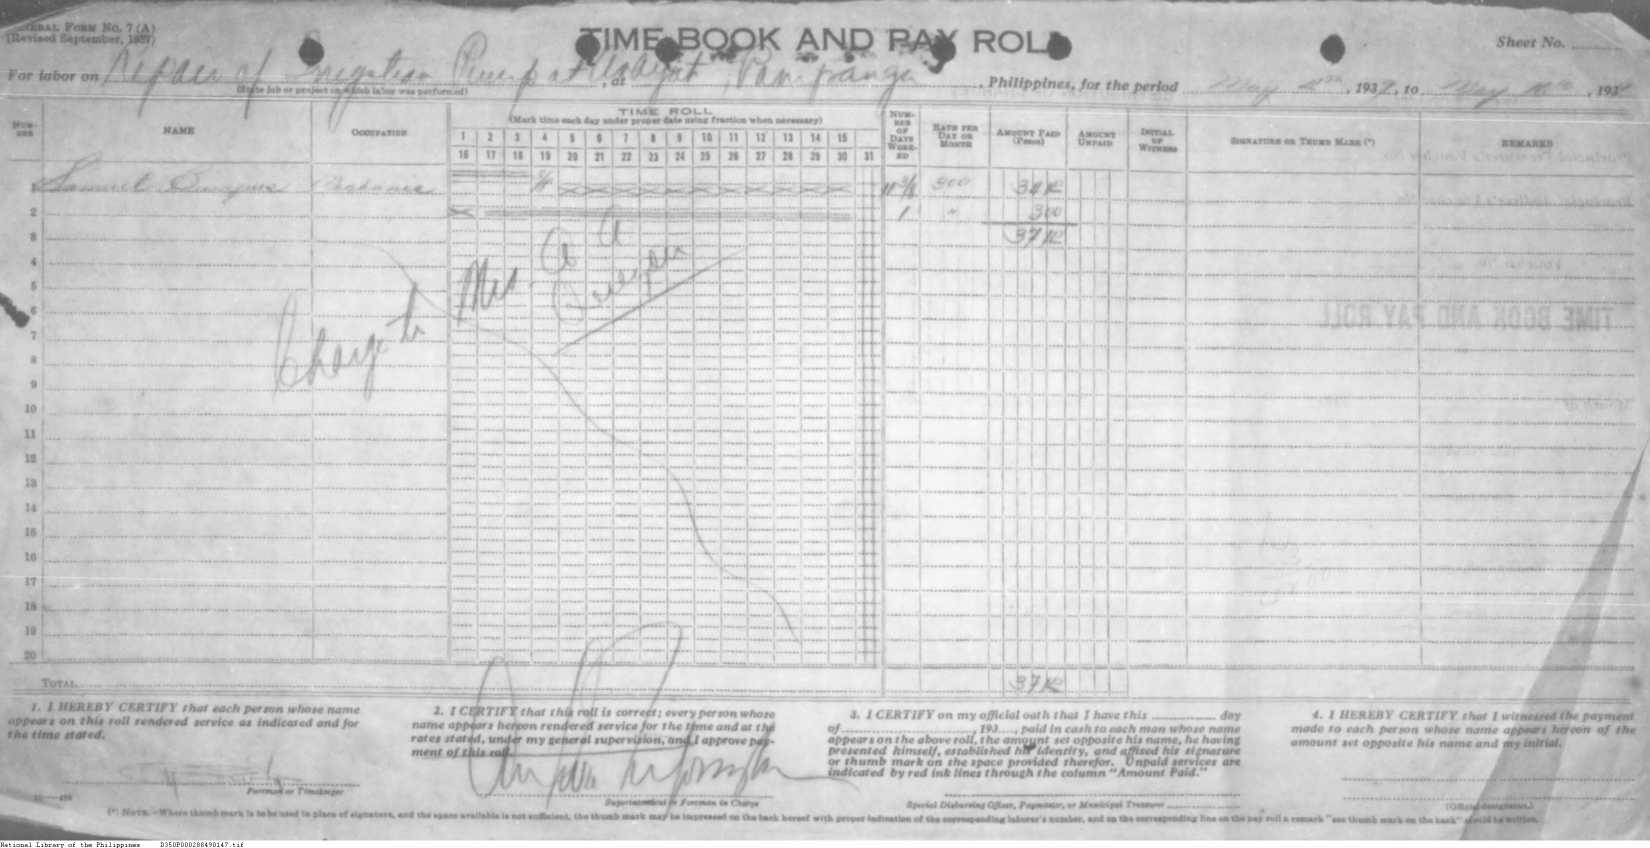 GENERAL FORM No. 7 (A)
(Revised September, 1937)
TIME BOOK AND PAY ROLL
Sheet No.
For labor on Repair of Irrigation Pump at Arayat, at Pampanga, Philippines, for the period May , 193, to May , 193
(State job or project on which labor was performed)
NUMBER
NAME
OCCUPATION
TIME ROLL
(Mark time each day under proper date using fraction when necessary)
1 2 3 4 5 6 7 8 9 10 11 12 13 14 15
16 17 18 19 20 21 22 23 24 25 26 27 28 29 30 31
NUMBER OF DAYS WORKED
RATE PER DAY OR MONTH
AMOUNT PAID (Pesos)
AMOUNT UNPAID
INITIAL OF WITNESS
SIGNATURE OR THUMB MARK (*)
REMARKS
Samuel 11 3/8 300 34 12
2 1 " 300
3 37 12
4
5
6
7
8
9
10
11
12
13
14
15
16
17
18
19
20
Charge to Mrs. A A
TOTAL 37 12
1. I HEREBY CERTIFY that each person whose name
appears on this roll rendered service as indicated and for
the time stated.
Foreman or Timekeeper
2. I CERTIFY that this roll is correct; every person whose
name appears hereon rendered service for the time and at the
rates stated, under my general supervision, and I approve pay-
ment of this roll.
Superintendent or Foreman in Charge
3. I CERTIFY on my official oath that I have this day
of , 193, paid in cash to each man whose name
appears on the above roll, the amount set opposite his name, he having
presented himself, established his identity, and affixed his signature
or thumb mark on the space provided therefor. Unpaid services are
indicated by red ink lines through the column "Amount Paid."
Special Disbursing Officer, Paymaster, or Municipal Treasurer
4. I HEREBY CERTIFY that I witnessed the payment
made to each person whose name appears hereon of the
amount set opposite his name and my initial.
(Official designation)
(*) NOTE.—Where thumb mark is to be used in place of signature, and the space available is not sufficient, the thumb mark may be impressed on the back hereof with proper indication of the corresponding laborer's number, and on the corresponding line on the pay roll a remark "see thumb mark on the back" should be written.
National Library of the Philippines D350P000288490147.tif